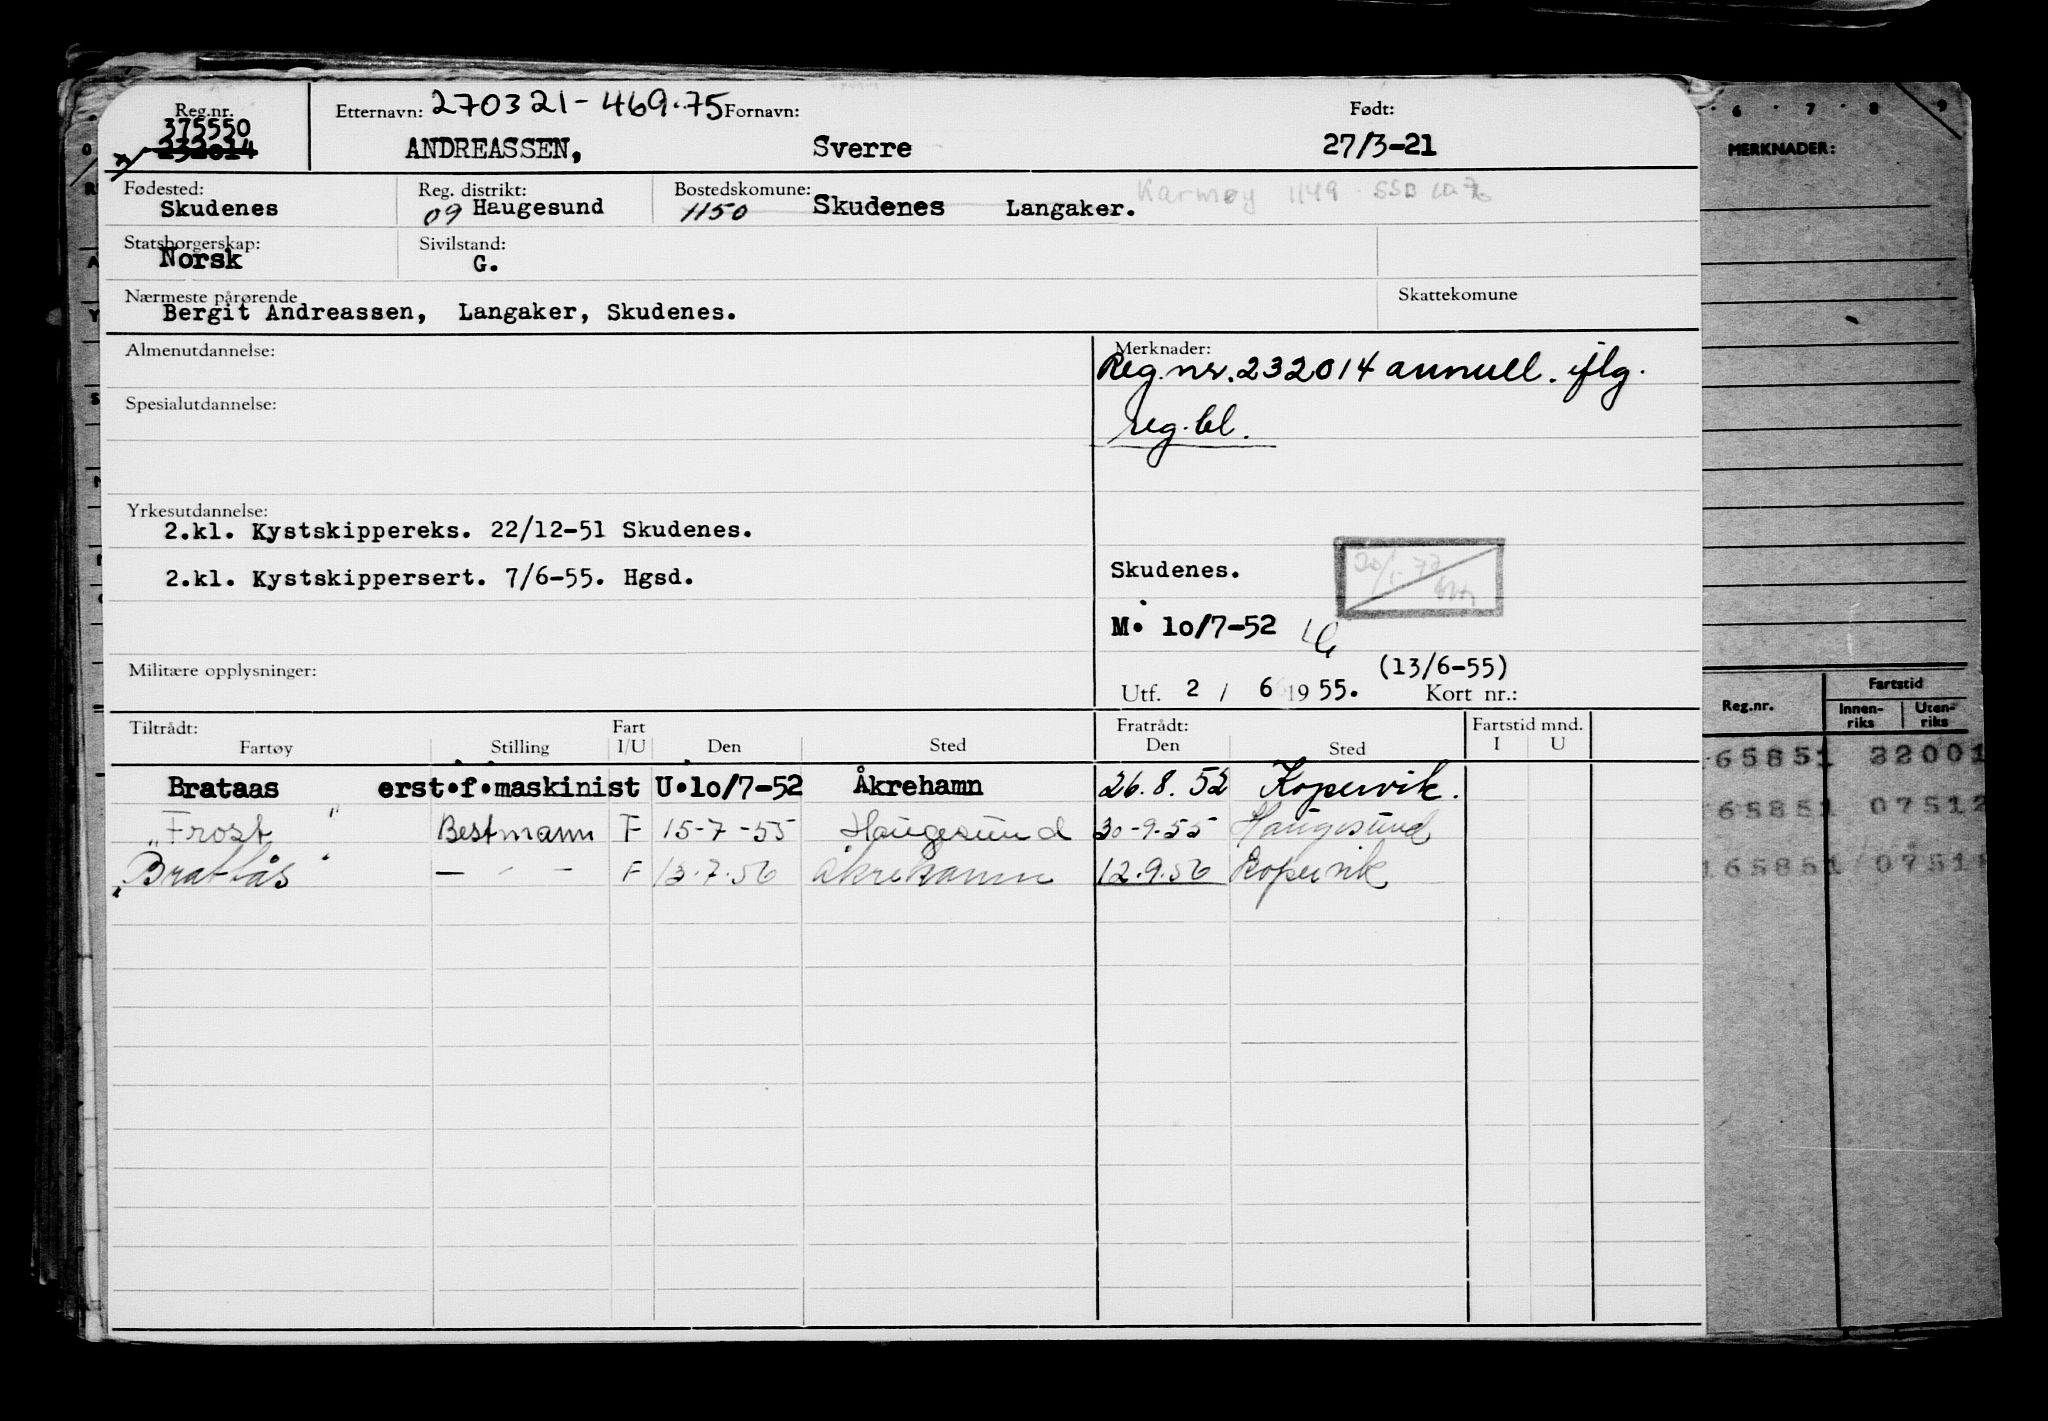 Reg.nr. Etternavn: 270321-469.75 Fornavn: Født:
375550
232014 ANDREASSEN, Sverre 27/3-21
Fødested: Reg. distrikt: Bostedskomune: Karmøy 1149
Skudenes 09 Haugesund 1150 Skudenes Langaker.
Statsborgerskap: Sivilstand:
Norsk G.
Nærmeste pårørende Skattekomune
Bergit Andreassen, Langaker, Skudenes.
Almenutdannelse: Merknader:
Reg.nr. 232014 annull. iflg.
Spesialutdannelse:
reg. bl.
Yrkesutdannelse:
2.kl. Kystskippereks. 22/12-51 Skudenes.
2.kl. Kystskippersert. 7/6-55. Hgsd. Skudenes.
M. 10/7-52
Militære opplysninger: (13/6-55)
Utf. 2 / 6 1955. Kort nr.:
Tiltrådt: Fart Fratrådt: Fartstid mnd.
Fartøy Stilling I/U Den Sted Den Sted I U
Brataas erst.f.maskinist U.10/7-52 Åkrehamn 26.8.52 Kopervik.
"Frost" Bestmann F 15-7-55 Haugesund 30-9-55 Haugesund
"Brattås" — " — F 13.7.56 Åkrehamn 12.9.56 Kopervik
6 7 8 9
MERKNADER:
Fartstid
Reg.nr. Innen-riks Uten-riks
65851 22001
65851 07512
165851 0751